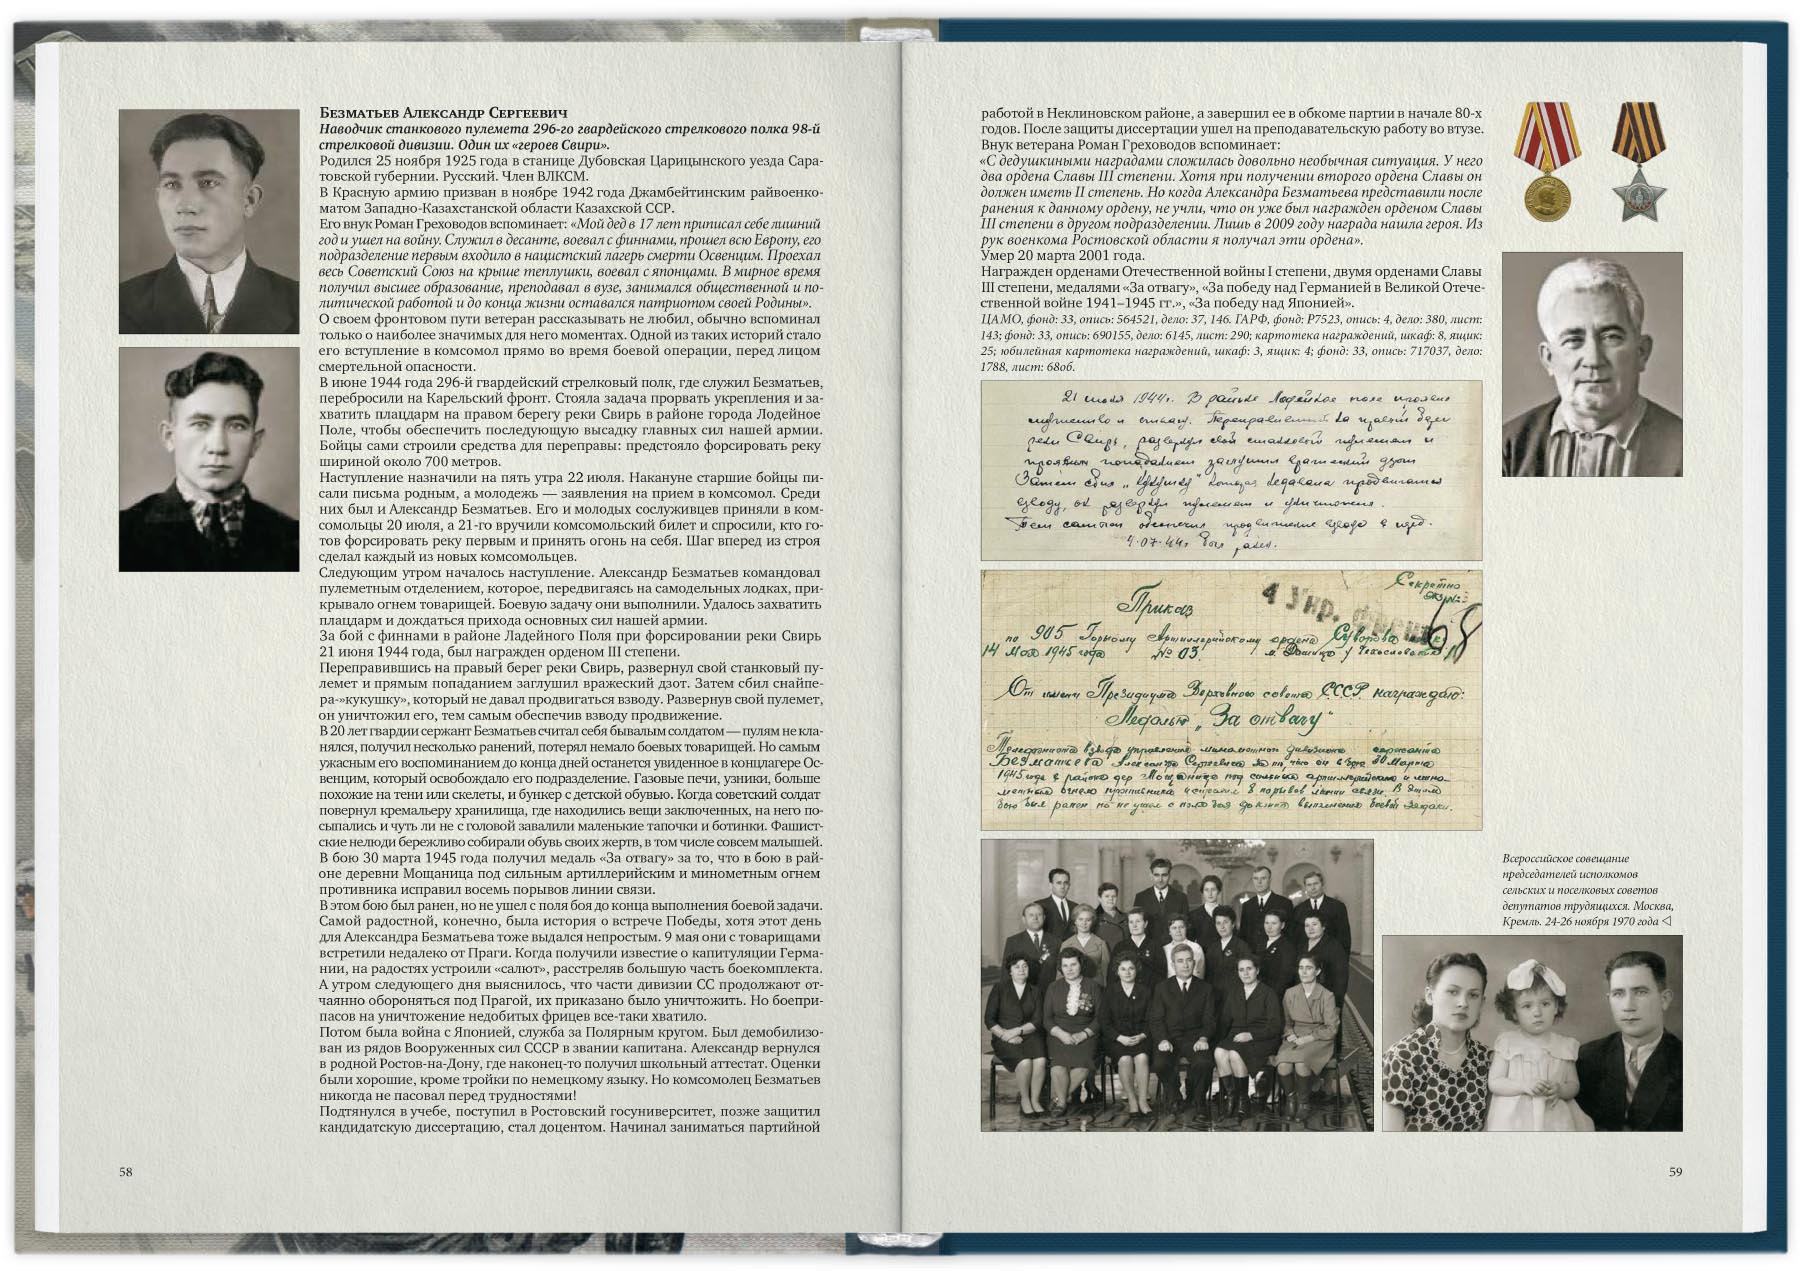 Безматьев Александр Сергеевич
Наводчик станкового пулемета 296-го гвардейского стрелкового полка 98-й
стрелковой дивизии. Один их «героев Свири».
Родился 25 ноября 1925 года в станице Дубовская Царицынского уезда Сара-
товской губернии. Русский. Член ВЛКСМ.
В Красную армию призван в ноябре 1942 года Джамбейтинским райвоенко-
матом Западно-Казахстанской области Казахской ССР.
Его внук Роман Греховодов вспоминает: «Мой дед в 17 лет приписал себе лишний
год и ушел на войну. Служил в десанте, воевал с финнами, прошел всю Европу, его
подразделение первым входило в нацистский лагерь смерти Освенцим. Проехал
весь Советский Союз на крыше теплушки, воевал с японцами. В мирное время
получил высшее образование, преподавал в вузе, занимался общественной и по-
литической работой и до конца жизни оставался патриотом своей Родины».
О своем фронтовом пути ветеран рассказывать не любил, обычно вспоминал
только о наиболее значимых для него моментах. Одной из таких историй стало
его вступление в комсомол прямо во время боевой операции, перед лицом
смертельной опасности.
В июне 1944 года 296-й гвардейский стрелковый полк, где служил Безматьев,
перебросили на Карельский фронт. Стояла задача прорвать укрепления и за-
хватить плацдарм на правом берегу реки Свирь в районе города Лодейное
Поле, чтобы обеспечить последующую высадку главных сил нашей армии.
Бойцы сами строили средства для переправы: предстояло форсировать реку
шириной около 700 метров.
Наступление назначили на пять утра 22 июля. Накануне старшие бойцы пи-
сали письма родным, а молодежь — заявления на прием в комсомол. Среди
них был и Александр Безматьев. Его и молодых сослуживцев приняли в ком-
сомольцы 20 июля, а 21-го вручили комсомольский билет и спросили, кто го-
тов форсировать реку первым и принять огонь на себя. Шаг вперед из строя
сделал каждый из новых комсомольцев.
Следующим утром началось наступление. Александр Безматьев командовал
пулеметным отделением, которое, передвигаясь на самодельных лодках, при-
крывало огнем товарищей. Боевую задачу они выполнили. Удалось захватить
плацдарм и дождаться прихода основных сил нашей армии.
За бой с финнами в районе Ладейного Поля при форсировании реки Свирь
21 июня 1944 года, был награжден орденом III степени.
Переправившись на правый берег реки Свирь, развернул свой станковый пу-
лемет и прямым попаданием заглушил вражеский дзот. Затем сбил снайпе-
ра-»кукушку», который не давал продвигаться взводу. Развернув свой пулемет,
он уничтожил его, тем самым обеспечив взводу продвижение.
В 20 лет гвардии сержант Безматьев считал себя бывалым солдатом — пулям не кла-
нялся, получил несколько ранений, потерял немало боевых товарищей. Но самым
ужасным его воспоминанием до конца дней останется увиденное в концлагере Ос-
венцим, который освобождало его подразделение. Газовые печи, узники, больше
похожие на тени или скелеты, и бункер с детской обувью. Когда советский солдат
повернул кремальеру хранилища, где находились вещи заключенных, на него по-
сыпались и чуть ли не с головой завалили маленькие тапочки и ботинки. Фашист-
ские нелюди бережливо собирали обувь своих жертв, в том числе совсем малышей.
В бою 30 марта 1945 года получил медаль «За отвагу» за то, что в бою в рай-
оне деревни Мощаница под сильным артиллерийским и минометным огнем
противника исправил восемь порывов линии связи.
В этом бою был ранен, но не ушел с поля боя до конца выполнения боевой задачи.
Самой радостной, конечно, была история о встрече Победы, хотя этот день
для Александра Безматьева тоже выдался непростым. 9 мая они с товарищами
встретили недалеко от Праги. Когда получили известие о капитуляции Герма-
нии, на радостях устроили «салют», расстреляв большую часть боекомплекта.
А утром следующего дня выяснилось, что части дивизии СС продолжают от-
чаянно обороняться под Прагой, их приказано было уничтожить. Но боепри-
пасов на уничтожение недобитых фрицев все-таки хватило.
Потом была война с Японией, служба за Полярным кругом. Был демобилизо-
ван из рядов Вооруженных сил СССР в звании капитана. Александр вернулся
в родной Ростов-на-Дону, где наконец-то получил школьный аттестат. Оценки
были хорошие, кроме тройки по немецкому языку. Но комсомолец Безматьев
никогда не пасовал перед трудностями!
Подтянулся в учебе, поступил в Ростовский госуниверситет, позже защитил
кандидатскую диссертацию, стал доцентом. Начинал заниматься партийной
58
работой в Неклиновском районе, а завершил ее в обкоме партии в начале 80-х
годов. После защиты диссертации ушел на преподавательскую работу во втузе.
Внук ветерана Роман Греховодов вспоминает:
«С дедушкиными наградами сложилась довольно необычная ситуация. У него
два ордена Славы III степени. Хотя при получении второго ордена Славы он
должен иметь II степень. Но когда Александра Безматьева представили после
ранения к данному ордену, не учли, что он уже был награжден орденом Славы
III степени в другом подразделении. Лишь в 2009 году награда нашла героя. Из
рук военкома Ростовской области я получал эти ордена».
Умер 20 марта 2001 года.
Награжден орденами Отечественной войны I степени, двумя орденами Славы
III степени, медалями «За отвагу», «За победу над Германией в Великой Отече-
ственной войне 1941–1945 гг.», «За победу над Японией».
ЦАМО, фонд: 33, опись: 564521, дело: 37, 146. ГАРФ, фонд: Р7523, опись: 4, дело: 380, лист:
143; фонд: 33, опись: 690155, дело: 6145, лист: 290; картотека награждений, шкаф: 8, ящик:
25; юбилейная картотека награждений, шкаф: 3, ящик: 4; фонд: 33, опись: 717037, дело:
1788, лист: 68об.
21 июня 1944г. В районе Лодейное поле проявил
мужество и отвагу. Переправившись на правый берег
реки Свирь, развернул свой станковый пулемет и
прямым попаданием заглушил вражеский дзот
Затем сбил „кукушку" которая недавала продвигаться
взводу, он развернул пулемет и уничтожил.
Тем самым обеспечил продвижение взвода в перед.
4.07.44г. был ранен.
Секретно
экз №3
4 Укр. фронт
68
Приказ
по 905 Горному Артиллерийскому ордена Суворова
14 Мая 1945 года № 03.
От имени Президиума Верховного совета СССР награждаю:
Медалью „За отвагу"
Телефониста взвода управления минометного дивизиона сержанта
Безматьева Александра Сергеевича за то, что он в бою 30 Марта
1945 года в районе дер Мощаница под сильным артиллерийским и мино-
метным огнем противника исправил 8 порывов линии связи. В этом
бою был ранен но не ушел с поля боя до конца выполнения боевой задачи.
Всероссийское совещание
председателей исполкомов
сельских и поселковых советов
депутатов трудящихся. Москва,
Кремль. 24-26 ноября 1970 года ◁
59